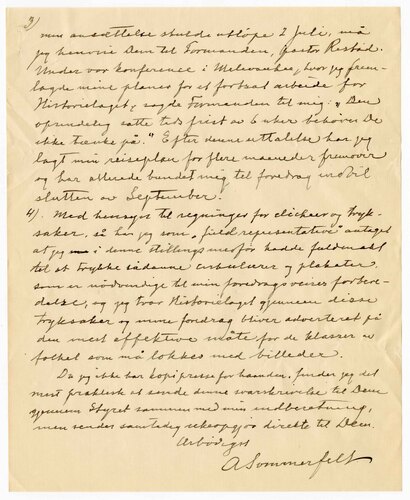 3)
min ansættelse skulde utløpe 2 Juli, må
jeg henvise Dem til Formanden, pastor Restad.
Under vor konference i Milwaukee, hvor jeg frem-
lagde mine planer for et fortsat arbeide for
Historielaget, sagde Formanden til mig: "Den
oprindelig satte tids frist av 6 uker behøver De
ikke tænke på." Efter denne uttalelse har jeg
lagt min reiseplan for flere maaneder fremover
og har allerede bundet mig til foredrag indtil
slutten av September.
4). Med hensyn til regninger for clicheer og tryk-
saker, så har jeg som "field representative" antaget
at jeg i denne stillings medfør hadde fuldmakt
til at trykke sådanne cirkulærer og plakater,
som er nødvendige til min foredragsreises forbere-
delse, og jeg tror Historielaget gjennem disse
tryksaker og mine foredrag bliver adverteret på
den mest effektive måte for de klasser av
folket som må lokkes med billeder.
Da jeg ikke har kopipresse for haanden, finder jeg det
mest praktisk at sende denne svarskrivelse til Dem
gjennem Styret sammen med min indberetning,
men sender samtidig rekopgjør direkte til Dem.
Arbødigst
A Sommerfelt